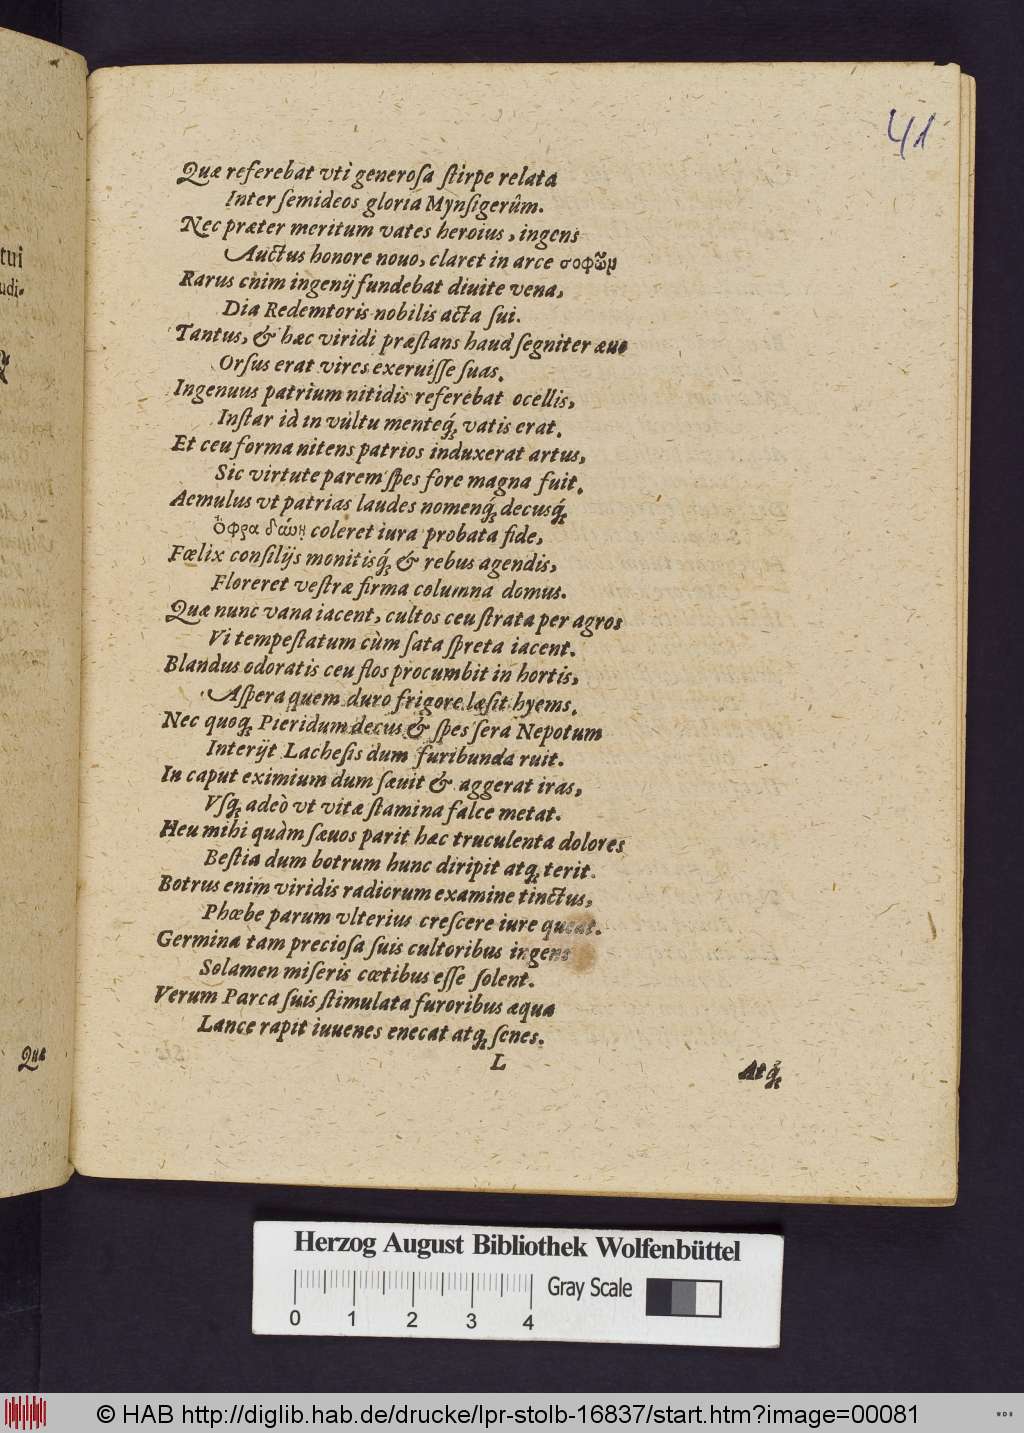 41
Quæ referebat vti generoſa ſtirpe relata
Inter ſemideos gloria Mynſigerûm.
Nec præter meritum vates heroius, ingens
Auctus honore nouo, claret in arce σοφῶμ
Rarus enim ingenij fundebat diuite vena,
Dia Redemtoris nobilis acta ſui.
Tantus, & hæc viridi præſtans haud ſegniter æuo
Orſus erat vires exeruiſſe ſuas.
Ingenuus patrium nitidis referebat ocellis,
Inſtar id in vultu menteq́; vatis erat.
Et ceu forma nitens patrios induxerat artus,
Sic virtute parem ſpes fore magna fuit.
Aemulus vt patrias laudes nomenq́; decusq́;
ὄφρα δώῃ coleret iura probata fide,
Fœlix conſilijs monitisq́; & rebus agendis,
Floreret veſtræ firma columna domus.
Quæ nunc vana iacent, cultos ceu ſtrata per agros
Vi tempeſtatum cùm ſata ſpreta iacent.
Blandus odoratis ceu flos procumbit in hortis,
Aſpera quem duro frigore læſit hyems.
Nec quoq; Pieridum decus & ſpes ſera Nepotum
Interijt Lacheſis dum furibunda ruit.
In caput eximium dum ſæuit & aggerat iras,
Vſq; adeò vt vitæ ſtamina falce metat.
Heu mihi quàm ſæuos parit hæc truculenta dolores
Beſtia dum botrum hunc diripit atq; terit.
Botrus enim viridis radicrum examine tinctus,
Phœbe parum vlterius creſcere iure queat.
Germina tam precioſa ſuis cultoribus ingens
Solamen miſeris cœtibus eſſe ſolent.
Verum Parca ſuis ſtimulata furoribus æqua
Lance rapit iuuenes enecat atq; ſenes.
L
Atq́;
tui
udi-
Quæ
Herzog August Bibliothek Wolfenbüttel
Gray Scale
0 1 2 3 4
© HAB http://diglib.hab.de/drucke/lpr-stolb-16837/start.htm?image=00081